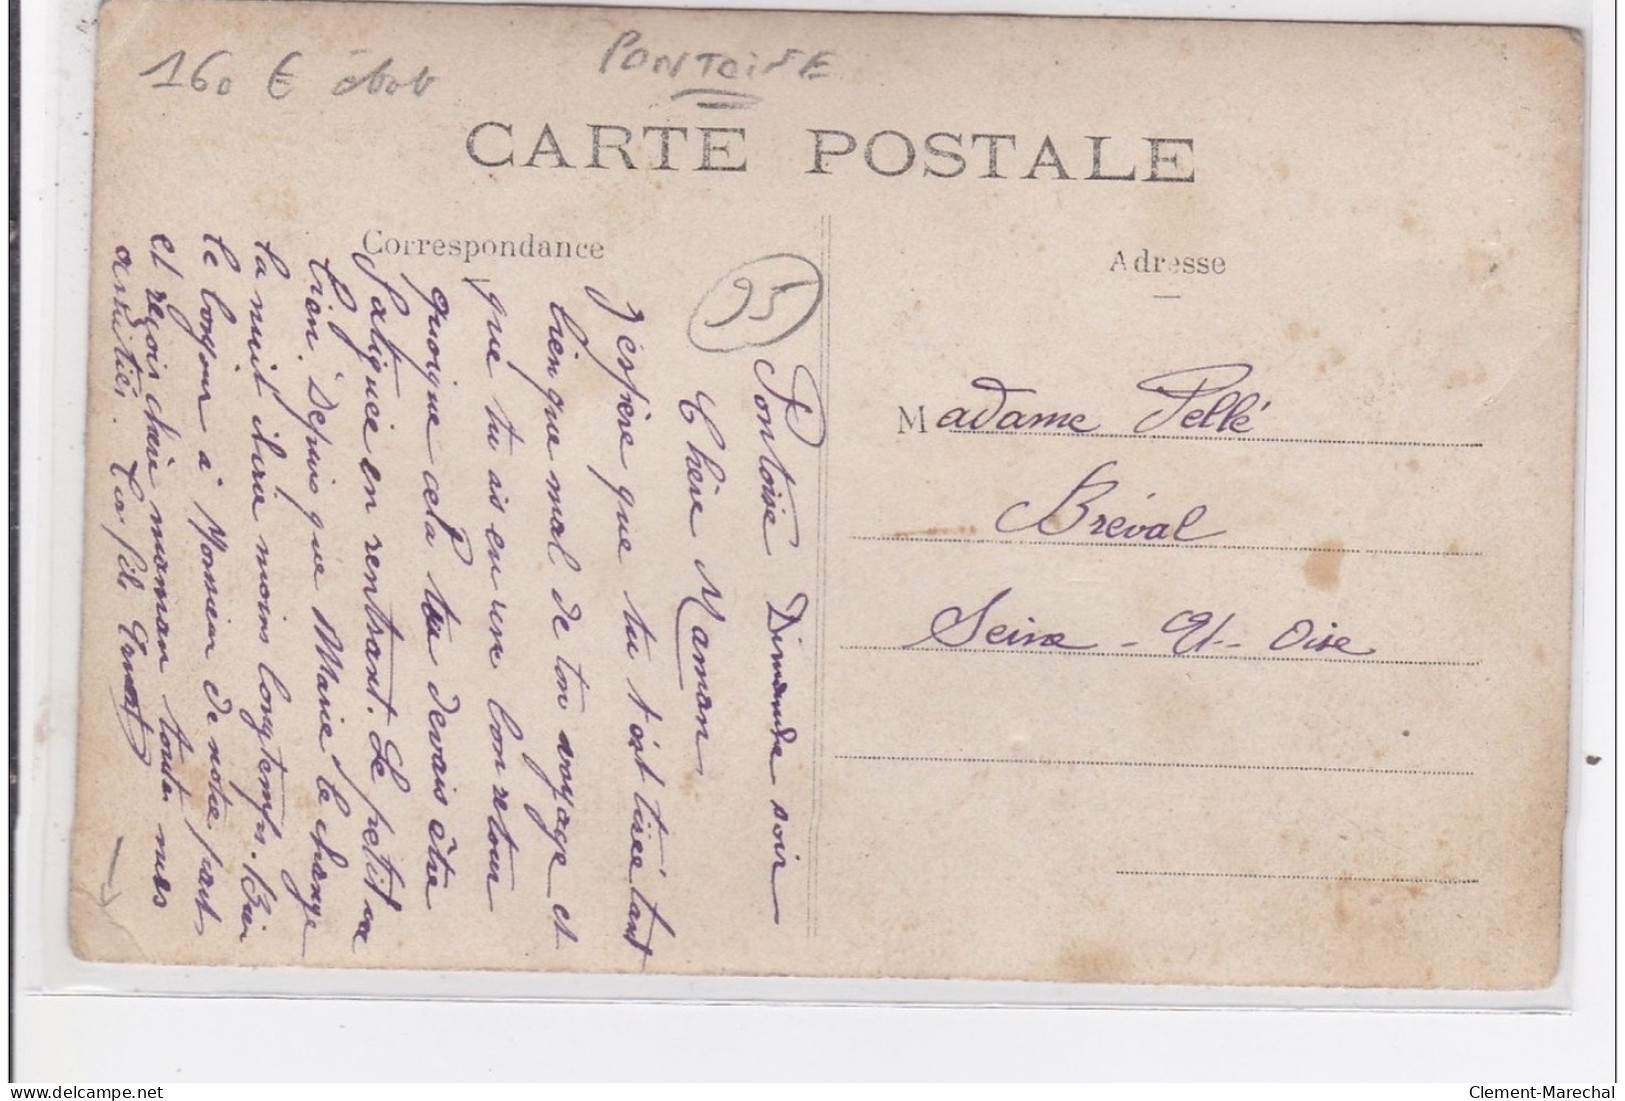 160 €
PONTOISE
CARTE POSTALE
Correspondance
Adresse
95
Pontoise Dimanche soir
Chère Maman
J'espère que tu t'es tirée tant
bien que mal de ton voyage et
que tu as eu une bon retour
quoique cela tu devais être
fatiguée en rentrant. Le petit va
bien. Depuis que Marie le change
la nuit il crie moins longtemps. Bien
le bonjour à Monsieur de notre part
et reçois chère maman toutes mes
amitiés. Ton fils Ernest
Madame Pellé
Bréval
Seine-et-Oise
delcampe.net
Clement-Marechal